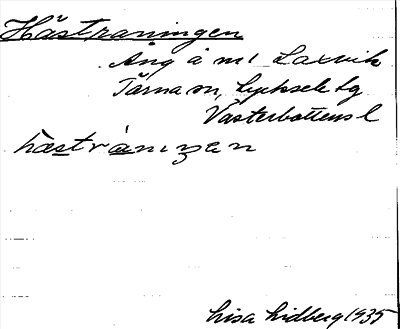 Hästraningen
Äng å m1 Laxvik
Tärna sn, Lycksele tg
Västerbottens l
hæstráningen
Lisa Lidberg 1935